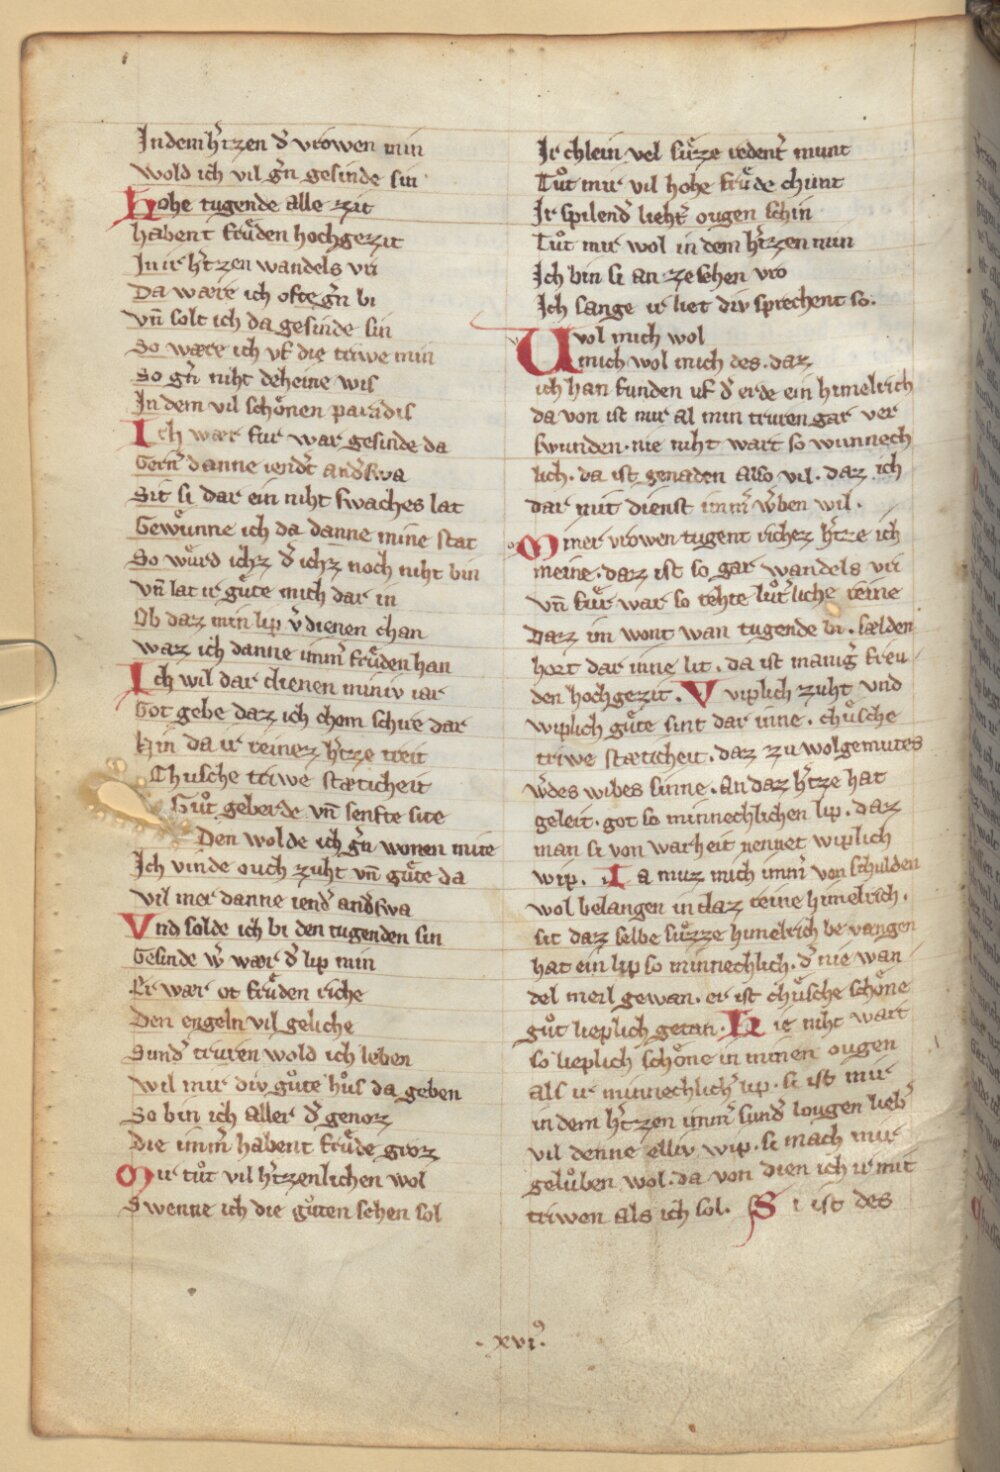 In dem h̾tzen d̾ vrowen min
wold ich vil g̾n gesinde sin
Hohe tugende alle zit
habent frꝟden hochgezit
In ir h̾tzen wandels vri
Da wære ich ofte g̾n bi
vn̄ solt ich da gesinde sin
So wære ich vf die triwe min
So g̾n niht deheine wis
In dem vil schoͤnen paradis
Ich wær fur war gesinde da
Gern̾ danne iend̾t and̾swa
Sit si dar ein niht swaches lat
Gewuͤnne ich da danne mine stat
So wuͤrd ichz d̾ ichz noch niht bin
vn̄ lat ir guͤte mich dar in
Ob daz min lip v̾dienen chan
waz ich danne imm̾ fruͤden han
Ich wil dar dienen miniv iar
Got gebe daz ich chom schire dar
Hin da ir reinez h̾tze treit
Chusche triwe stæticheit
Guͦt geberde vn̄ senfte site
Den wolde ich g̾n wonen mite
Ich vinde ouch zuht vn̄ guͤte da
vil mer danne iend̾ and̾swa
Vnd solde ich bi den tugenden sin
Gesinde w̾ wær d̾ lip min
Er wær ot fruͤden riche
Den engeln vil geliche
Sund̾ truren wold ich leben
wil mir div guͤte huͦs da geben
So bin ich aller d̾ genoz
die imm̾ habent fruͤde groz
Mir tuͦt vil h̾tzenlichen wol
Swenne ich die guͤten sehen sol
Ir chlein vel suͤzze redent̾ munt
Tuͦt mir vil hohe fruͤde chunt
Ir spilend̾ lieht̾ ougen schin
Tuͦt mir wol in dem h̾tzen min
Ich bin si an ze sehen vro
Ich sange ir liet div sprechent so.
Uvol mich wol
mich wol mich des. daz
ich han funden vf d̾ erde ein himelrich
da von ist mir al min truren gar ver
swunden. nie niht wart so wunnech
lich. da ist genaden also vil. daz ich
dar mit dienst imm̾ w̾ben wil.
Miner vrowen tugent richez h̾tze ich
meine. daz ist so gar wandels vri
vn̄ fuͤr war so rehte luͦt̾liche reine
Daz im wont wan tugende bi. sælden
hort dar inne lit. da ist manig̾ freu
den hochgezit. Vviplich zuht vnd
wiplich guͤte sint dar inne. chuͤsche
triwe stæticheit. daz zu wolgemutes
w̾des wibes sinne. An daz h̾tze hat
geleit. got so minnechlichen lip. daz
man si von warheit nennet wiplich
wip. Ia muz mich imm̾ von schulden
wol belangen in daz reine himelrich.
sit daz selbe suͤzze himelrich be vangen
hat ein lip so minnechlich. d̾ nie wan
del meil gewan. er ist chuͤsche schoͤne
guͦt lieplich getan. Hie niht wart
so lieplich schoͤne in minen ougen
als ir minnechlich̾ lip. si ist mir
in dem h̾tzen imm̾ sund̾ lougen lieb̾
vil denne elliv wip. si mach mir
geluͦben wol. da von dien ich ir mit
triwen als ich sol. Si ist des
.xvi⁹.